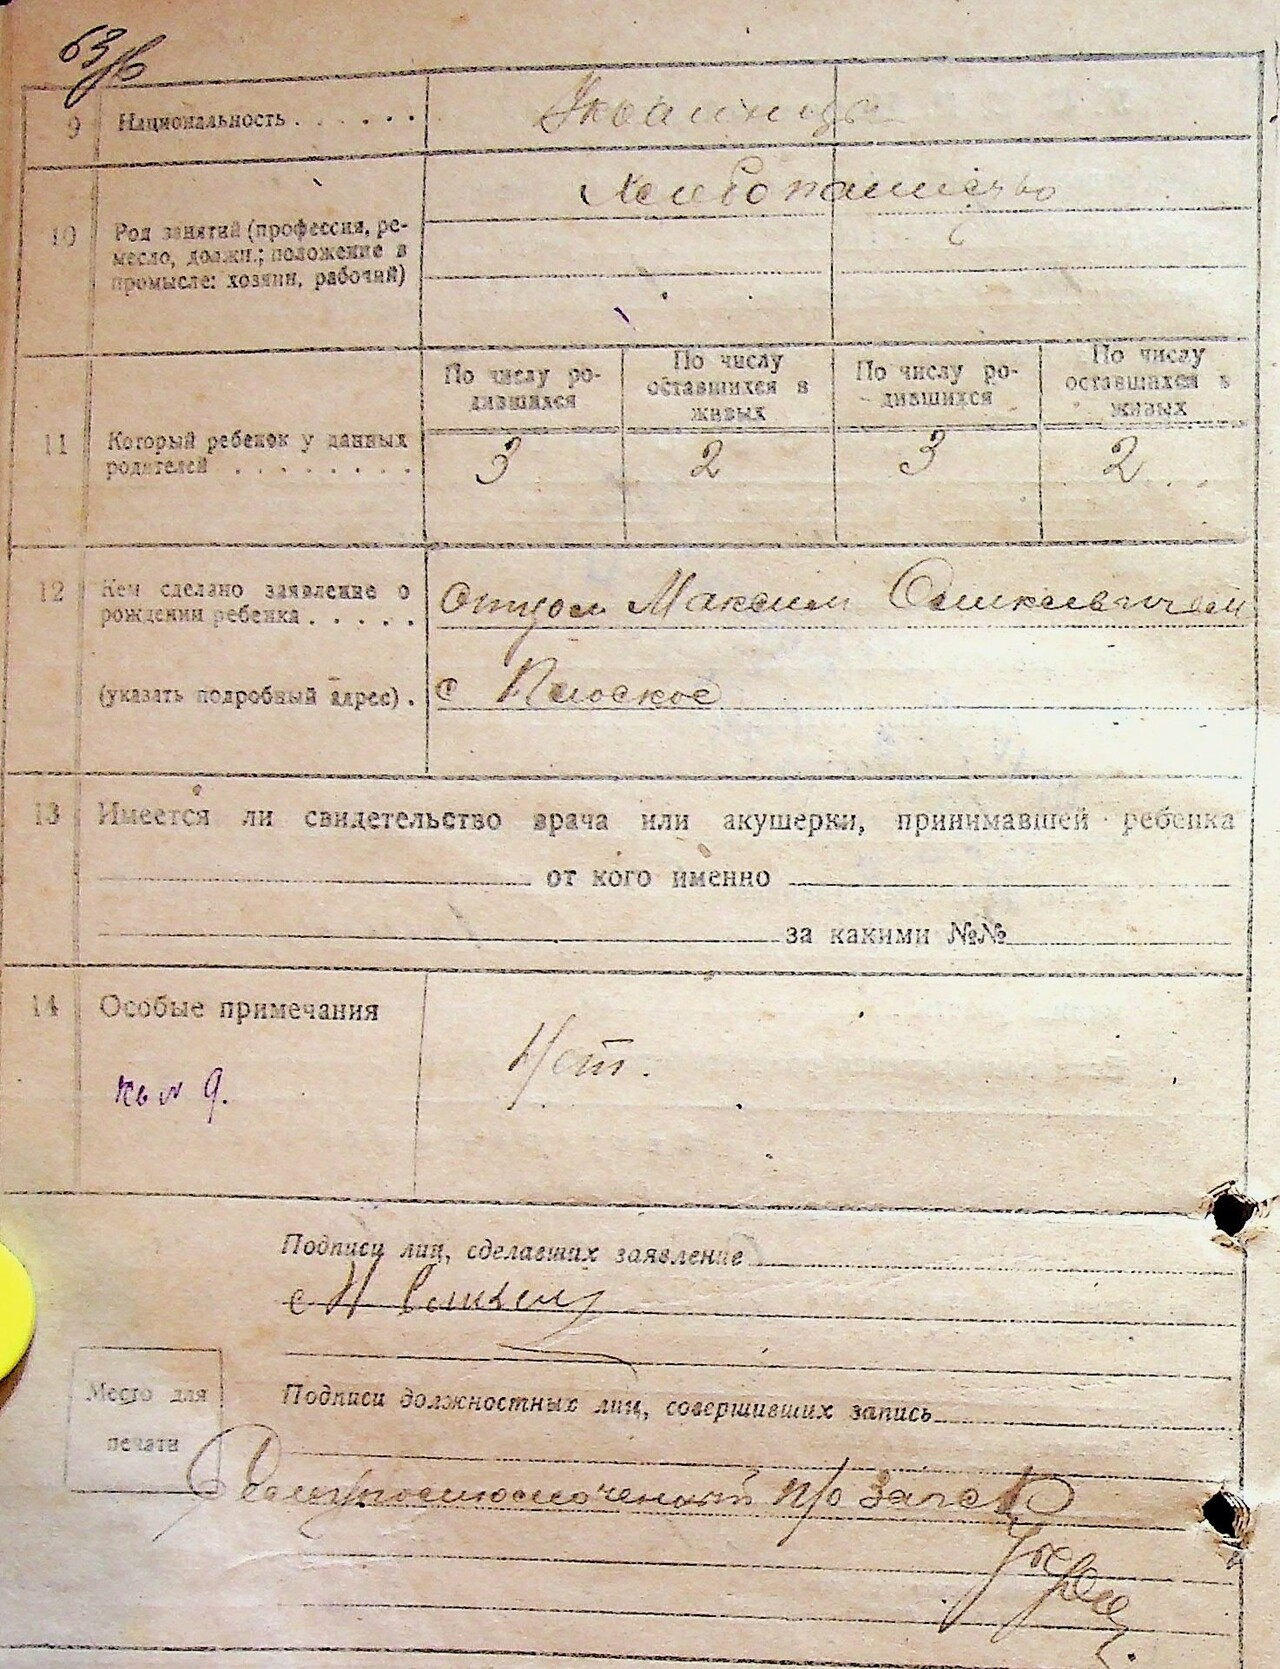 63
9 Национальность . . . . . .
Украинцы
Хлебопашество
10 Род занятий (профессия, ре-
месло, должн.; положение в
промысле: хозяин, рабочий)
По числу ро-
дившихся
По числу
оставшихся в
живых
По числу ро-
дившихся
По числу
оставшихся в
живых
11 Который ребенок у данных
родителей . . . . . . . .
3 2 3 2
12 Кем сделано заявление о
рождении ребенка . . . . .
Отцом Максим
(указать подробный адрес) .
с Плоское
13 Имеется ли свидетельство врача или акушерки, принимавшей ребенка
от кого именно
за какими №№
14 Особые примечания
Нет.
9.
Подписи лиц, сделавших заявление
Место для
печати
Подписи должностных лиц, совершивших запись
п/о Загс